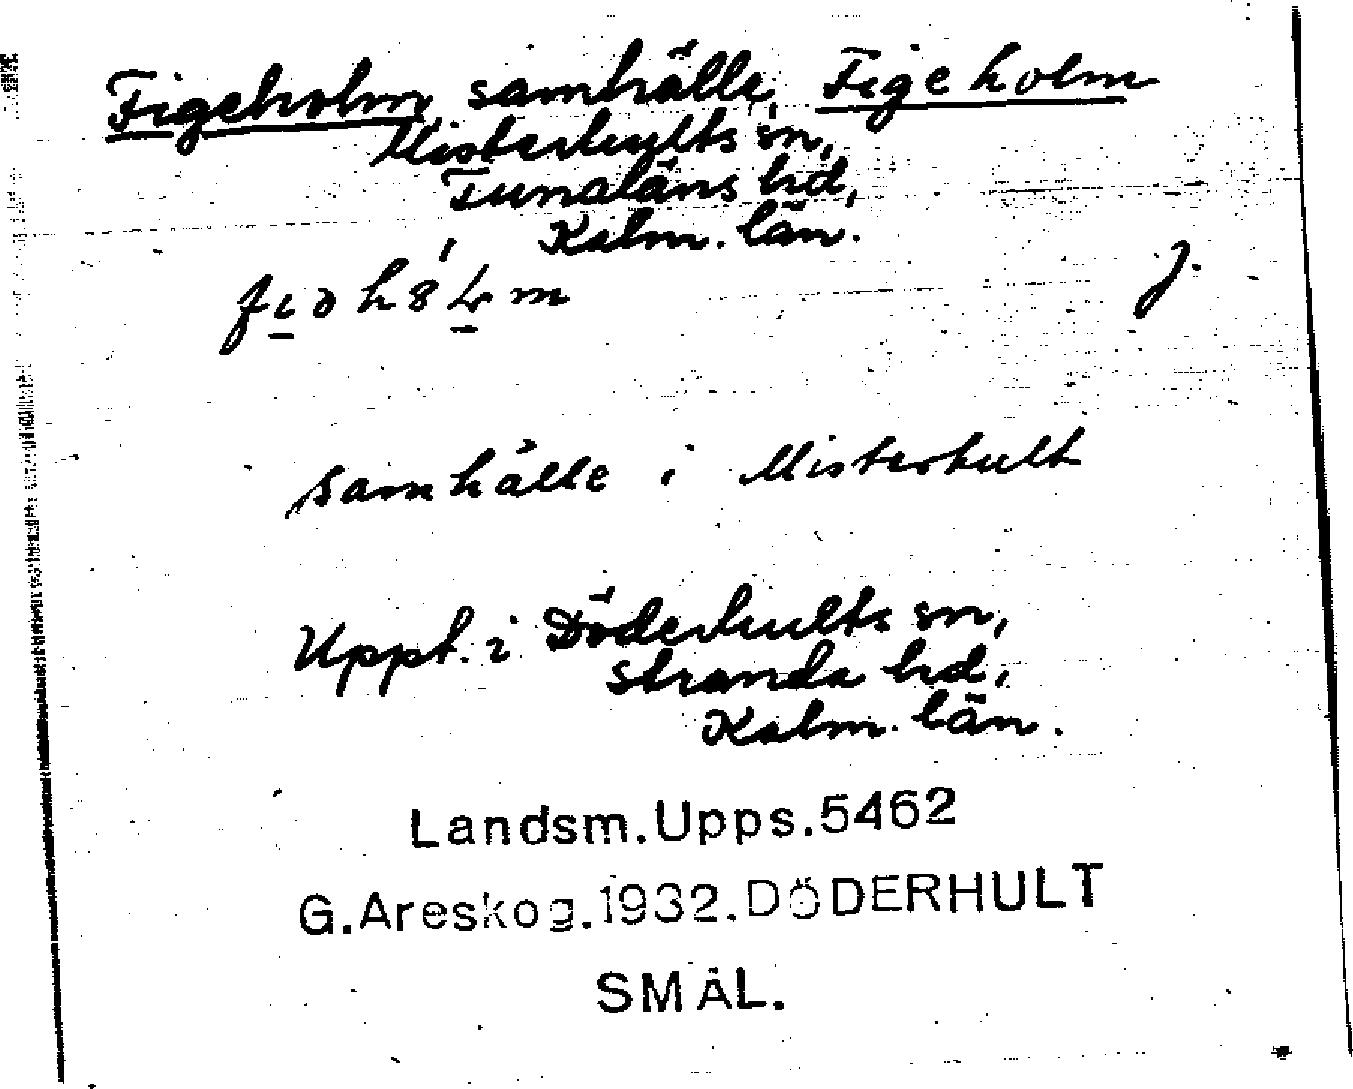 Figeholm, samhälle, Figeholm
Misterhults sn,
Tunaläns hd,
Kalm. län.
samhälle i Misterhult
Uppt. i Döderhults sn,
Stranda hd,
Kalm. län.
Landsm.Upps.5462
G.Areskog.1932.DÖDERHULT
SMÅL.